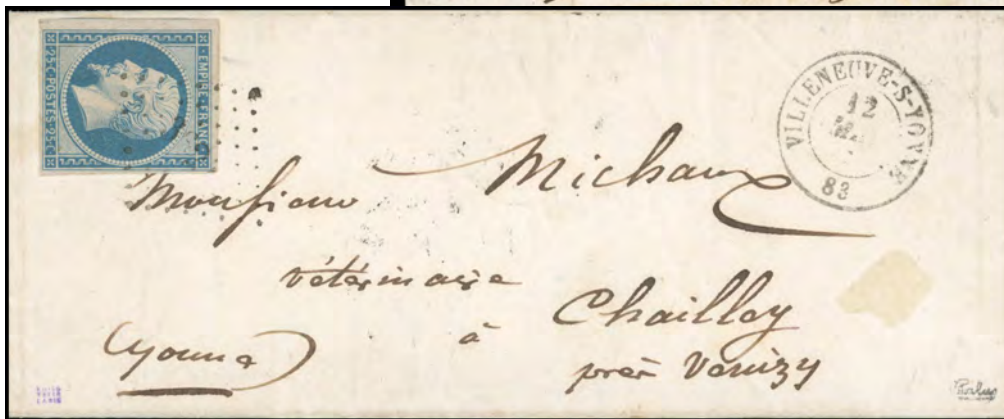 EMPIRE·FRANC·
25·C·POSTES·25·C
VILLENEUVE-S-YONNE
12
83
Monsieur Michaux
vétérinaire
à Chailley
(yonne) près Venizy